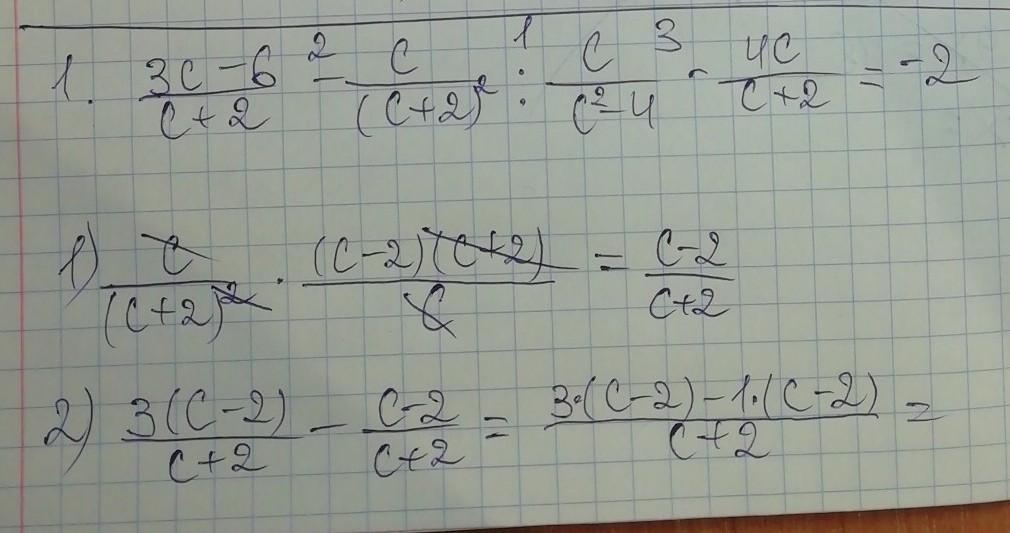 1. \frac{3c-6}{c+2} \overset{2}{-} \frac{c}{(c+2)^2} \overset{1}{:} \frac{c}{c^2-4} \overset{3}{-} \frac{4c}{c+2} = -2
1) \frac{c}{(c+2)^2} \cdot \frac{(c-2)(c+2)}{c} = \frac{c-2}{c+2}
2) \frac{3(c-2)}{c+2} - \frac{c-2}{c+2} = \frac{3\cdot(c-2)-1\cdot(c-2)}{c+2} =